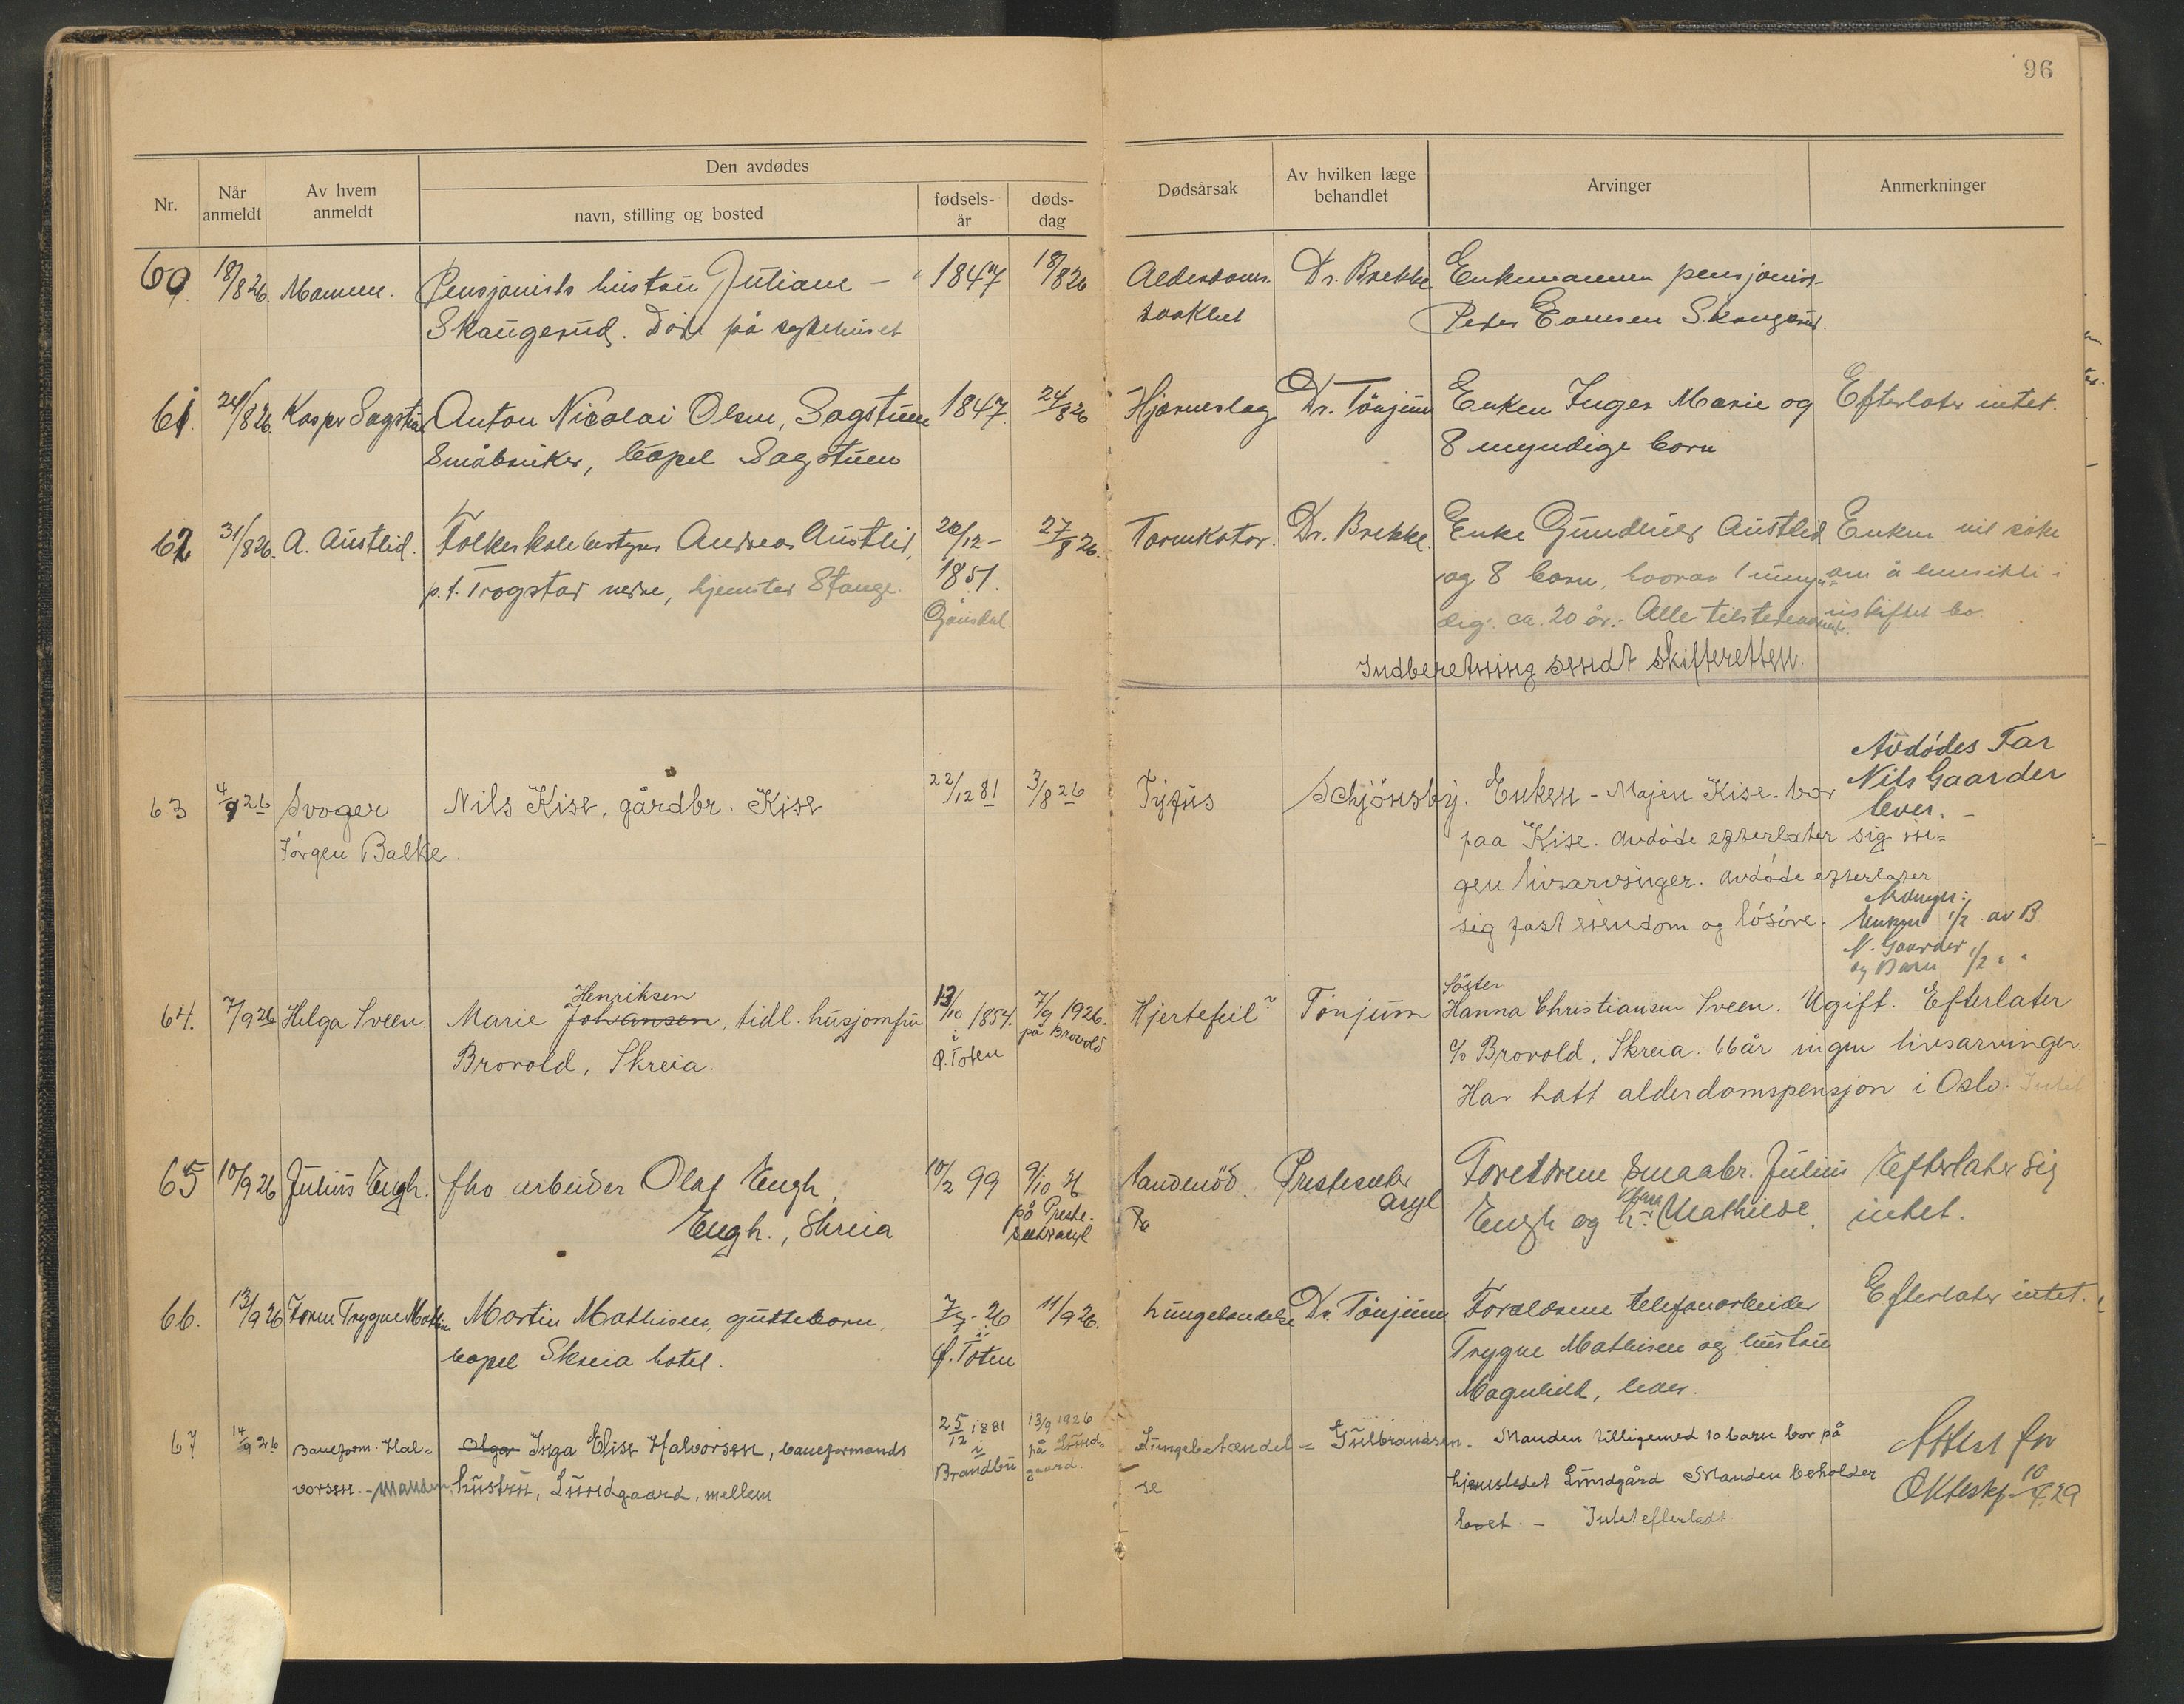 96
Den avdødes
Nr.
Når anmeldt
Av hvem anmeldt
navn, stilling og bosted
fødsels-år
døds-dag
Dødsårsak
Av hvilken læge behandlet
Arvinger
Anmerkninger
60. 18/8 26. Mannen. Pensjonists hustru Juliane 1847 18/8 26 Alderdoms- Dr. Brekke Enkemannen pensjonist
Skaugerud. Død på sykehuset svakhet Peter Skaugerud.
61. 24/8 26. Kasper Sagstuen Anton Nicolai Olsen, Sagstuen 1847. 24/8 26 Hjerneslag Dr. Tönjum Enken Inger Marie og Efterlater intet.
Småbruker, bopel Sagstuen 8 myndige barn
62 31/8 26. A. Austlid. Folkeskolebestyrer Andreas Austlid, 20/12- 27/8 26. Tarmkatar. Dr. Brekke. Enke Gundhild Austlid Enken vil söke
p.t. Trogstad nedre, hjemsted Stange. 1851. og 8 barn, hvorav 1 umyn= om å hensitte i
Gausdal. dig. ca. 20 år. Alle tilstedeværende. uskiftet bo.
Indberetning sendt skifteretten.
63 4/9 26 Svoger Nils Kise, gårdbr. Kise 22/12 81 3/8 26 Tyfus Schjönsby. Enken - Majen Kise - bor
Jörgen Balke. paa Kise. Avdöde efterlater sig in=
gen livsarvinger. Avdöde efterlater
sig fast eiendom og lösöre.
Avdödes Far
Nils Gaarder
lever. -
Arvinger:
Enken 1/2 av B
N. Gaarder
og Barn 1/2 " "
64. 7/9 26 Helga Sveen. Marie Johansen, tidl. husjomfru 13/10 1854. 7/9 1926. Hjertefeil Tönjum Söster
Henriksen
Brovold, Skreia. i Ø. Toten på Brovold Hanna Christiansen Sveen. Ugift. Efterlater
c/o Brovold, Skreia. 66 år ingen livsarvinger.
Har hatt alderdomspensjon i Oslo. Intet
65 10/9 26 Julius Engh. fho arbeider Olaf Engh, 10/2 99 9/10 Prestesæter Foreldrene smaabr. Julius Efterlater sig
Engh., Skreia på Preste-sæter asyl asyl Engh og Mathilde. intet.
66. 13/9 26 Faren Trygve Mathisen Martin Mathisen, guttebarn, 7/7- 26 11/9 26. Lungebetendelse Dr. Tönjum Foreldrene telefonarbeider Efterlater intet.
bopel Skreia hotel. Ø. Toten Trygve Mathisen og hustru
Magnhild, lever.
67 14/9 26 Baneform. Hal= Olga Inga Elise Halvorsen, baneformands 25/12 1881 13/9 1926 Lungebetændel= Gulbrandsen. Manden tilligemed 10 barn bor på
vorsen. - Manden. hustru, Lundgaard, mellem i Brandbu på Lund-gaard. se hjemstedet Lundgård Manden beholder
boet. - Intet efterladt
Attest for
10/4 29